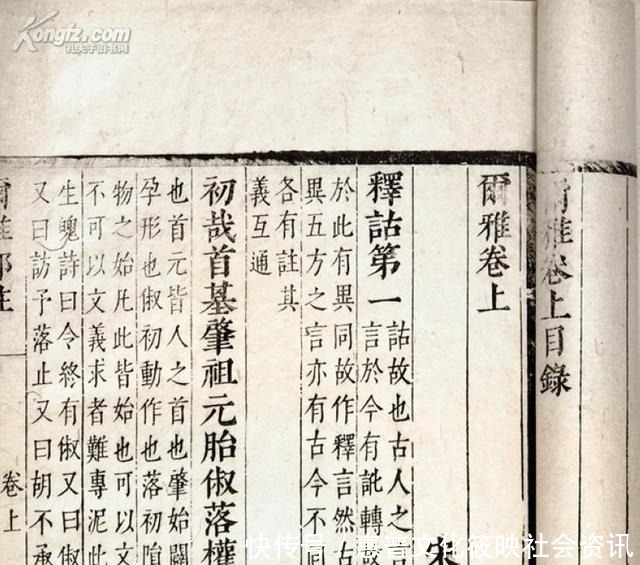 Kongfz.com
孔夫子旧书网
爾雅卷上目錄
爾雅卷上
釋詁第一
詁故也古人之
言於今有訛轉
於此有異同故作釋言然古
異五方之言亦有古今不同
各有註其
義互通
初哉首基肇祖元胎俶落權
也首元皆人之首也肇始闢
孕形也俶初動作也落初隕
物之始凡此皆始也可以文
不可以文義求者難專泥此
生魄詩曰令終有俶又曰俶
又曰訪予落止又曰胡不承
爾雅鄭注
卷上
快传号/惠普文化筱映社会资讯